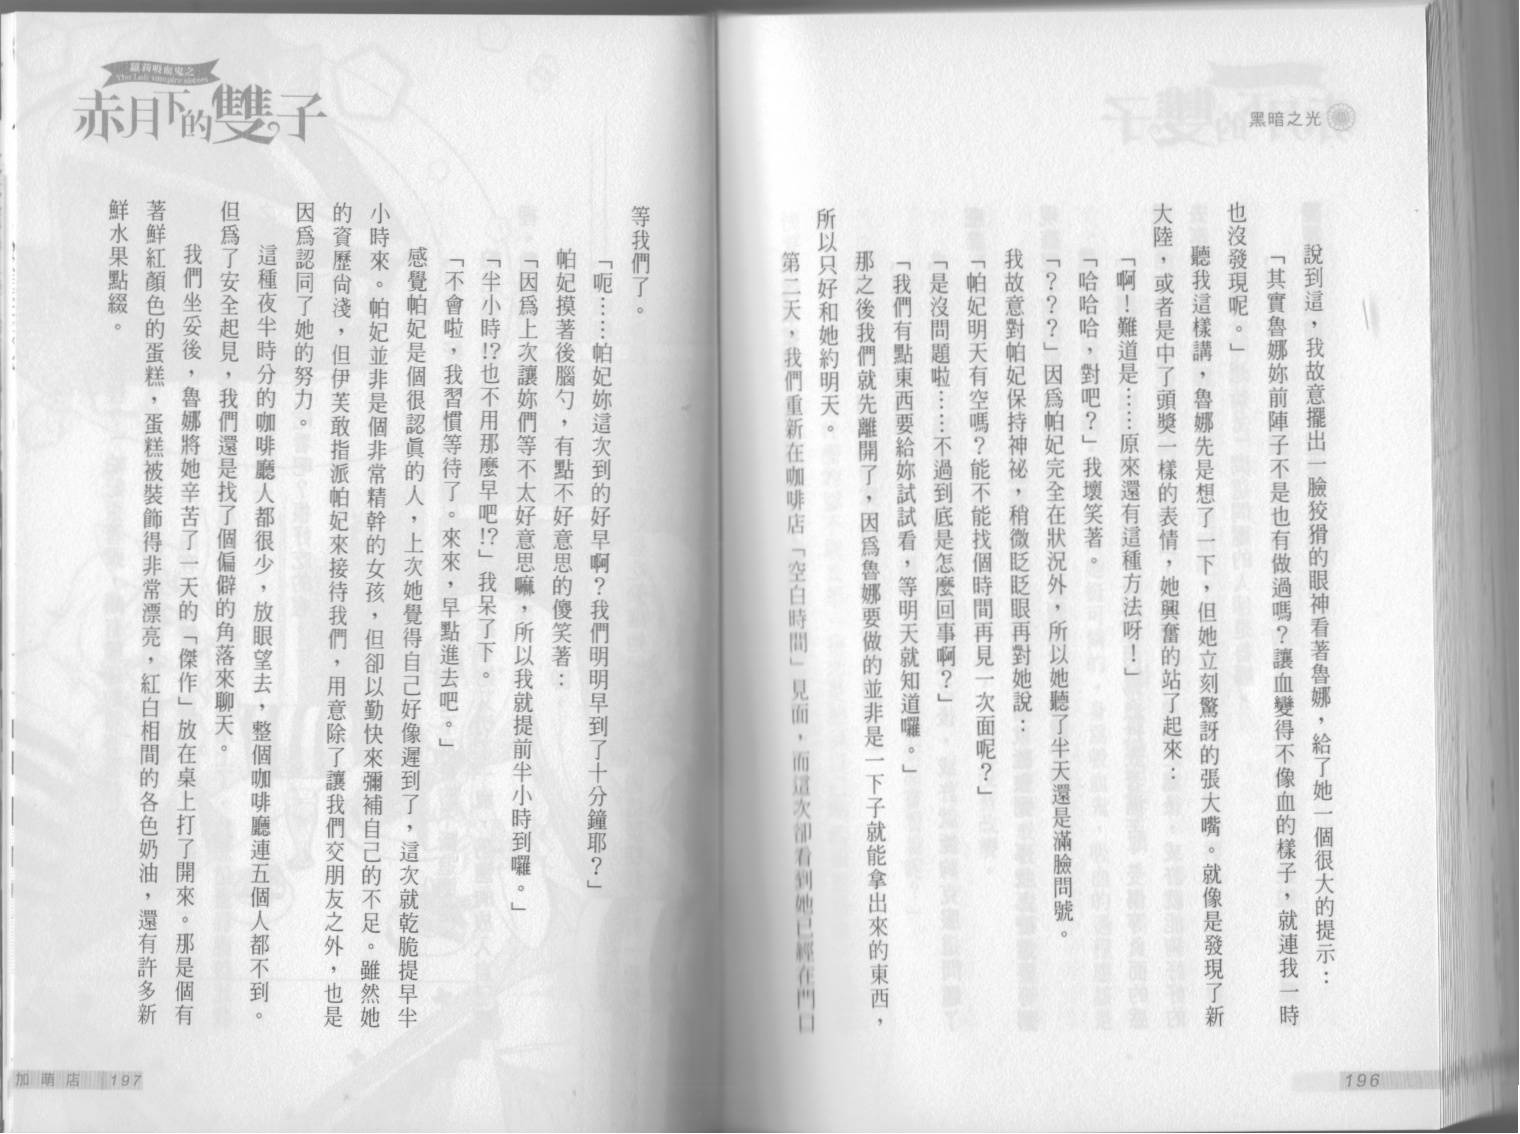 黑暗之光
說到這，我故意擺出一臉狡猾的眼神看著魯娜，給了她一個很大的提示：
「其實魯娜妳前陣子不是也有做過嗎？讓血變得不像血的樣子，就連我一時
也沒發現呢。」
聽我這樣講，魯娜先是想了一下，但她立刻驚訝的張大嘴。就像是發現了新
大陸，或者是中了頭獎一樣的表情，她興奮的站了起來：
「啊！難道是……原來還有這種方法呀！」
「哈哈哈，對吧？」我壞笑著。
「？？？」因為帕妃完全在狀況外，所以她聽了半天還是滿臉問號。
我故意對帕妃保持神祕，稍微眨眨眼再對她說：
「帕妃明天有空嗎？能不能找個時間再見一次面呢？」
「是沒問題啦……不過到底是怎麼回事啊？」
「我們有點東西要給妳試試看，等明天就知道囉。」
那之後我們就先離開了，因為魯娜要做的並非是一下子就能拿出來的東西，
所以只好和她約明天。
第二天，我們重新在咖啡店「空白時間」見面，而這次卻看到她已經在門口
196
蘿莉吸血鬼之
The Loli vampire sisters
赤月下的雙子
等我們了。
「呃……帕妃妳這次到的好早啊？我們明明早到了十分鐘耶？」
帕妃摸著後腦勺，有點不好意思的傻笑著：
「因為上次讓妳們等不太好意思嘛，所以我就提前半小時到囉。」
「半小時!?也不用那麼早吧!?」我呆了下。
「不會啦，我習慣等待了。來來，早點進去吧。」
感覺帕妃是個很認真的人，上次她覺得自己好像遲到了，這次就乾脆提早半
小時來。帕妃並非是個非常精幹的女孩，但卻以勤快來彌補自己的不足。雖然她
的資歷尚淺，但伊芙敢指派帕妃來接待我們，用意除了讓我們交朋友之外，也是
因為認同了她的努力。
這種夜半時分的咖啡廳人都很少，放眼望去，整個咖啡廳連五個人都不到。
但為了安全起見，我們還是找了個偏僻的角落來聊天。
我們坐妥後，魯娜將她辛苦了一天的「傑作」放在桌上打了開來。那是個有
著鮮紅顏色的蛋糕，蛋糕被裝飾得非常漂亮，紅白相間的各色奶油，還有許多新
鮮水果點綴。
加萌店 197